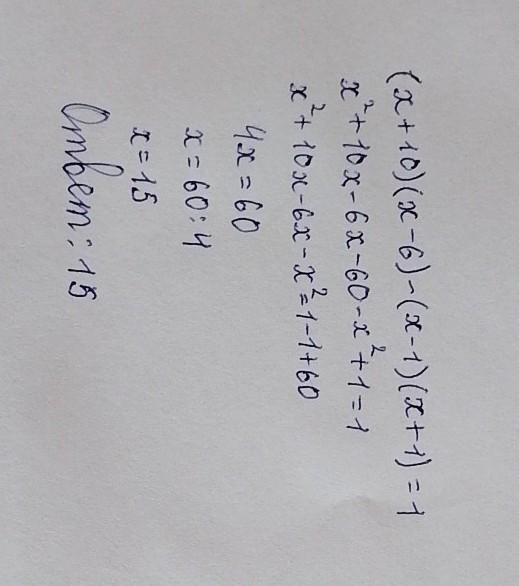 (x+10)(x-6)-(x-1)(x+1)=1
x²+10x-6x-60-x²+1=1
x²+10x-6x-x²=1-1+60
4x=60
x=60:4
x=15
Ответ:15